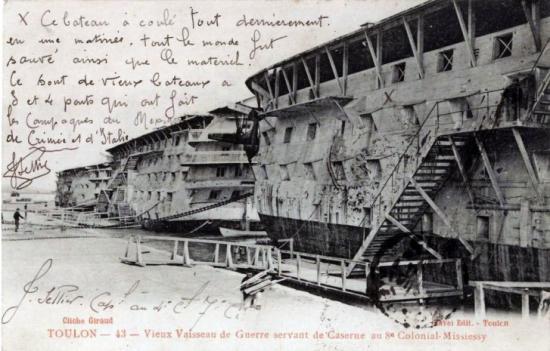 X Ce bateau a coulé tout dernièrement.
en une matinée. tout le monde fut
sauvé ainsi que le matériel.
Ce sont de vieux bateaux a
3 et 4 ponts qui ont fait
les Campagnes du Mexique
de Crimée et d'Italie
X
J. Cap au
Cliché Giraud
Edit. - Toulon
TOULON — 43 — Vieux Vaisseau de Guerre servant de Caserne au 8e Colonial-Missiessy